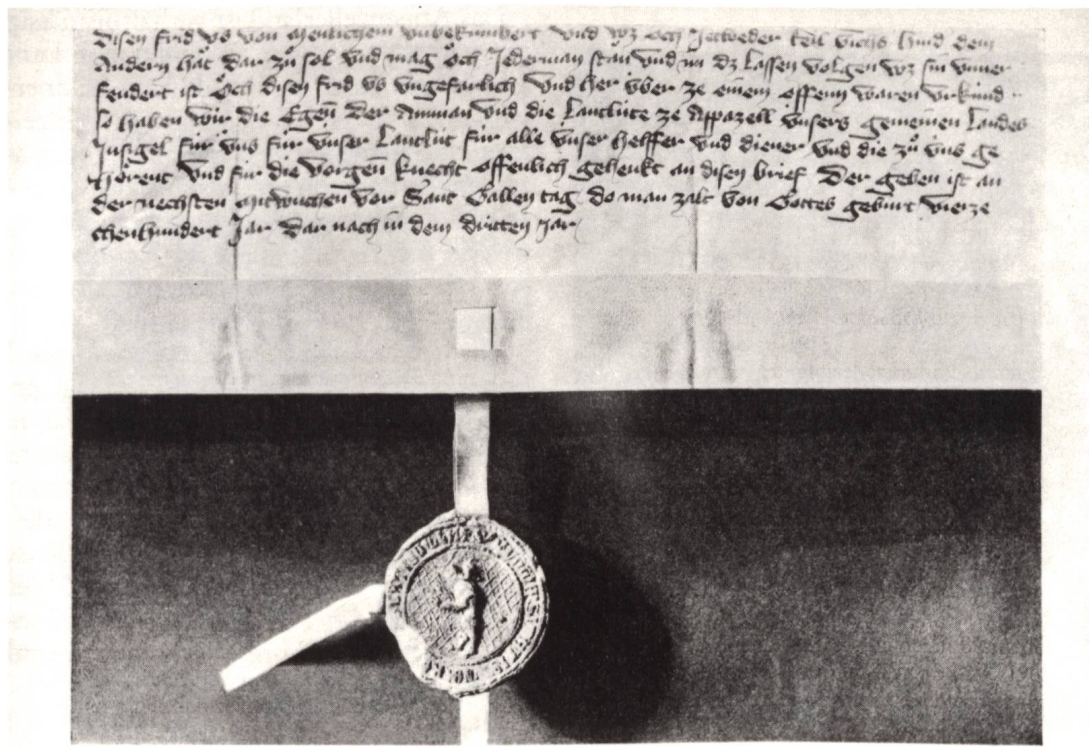 disen frid us von menlichem unbekümbert und wz och Jetweder teil vichs hind dem
Andern hat dar zů sol und mag och Jederman stan und im dz lassen volgen wz sin unuer
fendert ist och disen frid us ungefarlich und her über ze einem offenn waren urkünd
so haben wir die Egen̄ der Amman und die Lantlüte ze Appazell ünsers gemeinen Landes
Jnsigel für üns für ünser Lantlüt für alle ünser helffer und diener und die zů üns ge
hörent und für die vorgen̄ knecht offenlich gehenkt an disen brief Der geben ist an
der nechsten mitwuchen vor Sant Gallen tag do man zalt von Gottes gebürt vierze
chenhundert Jar Dar nach in dem dritten Jar